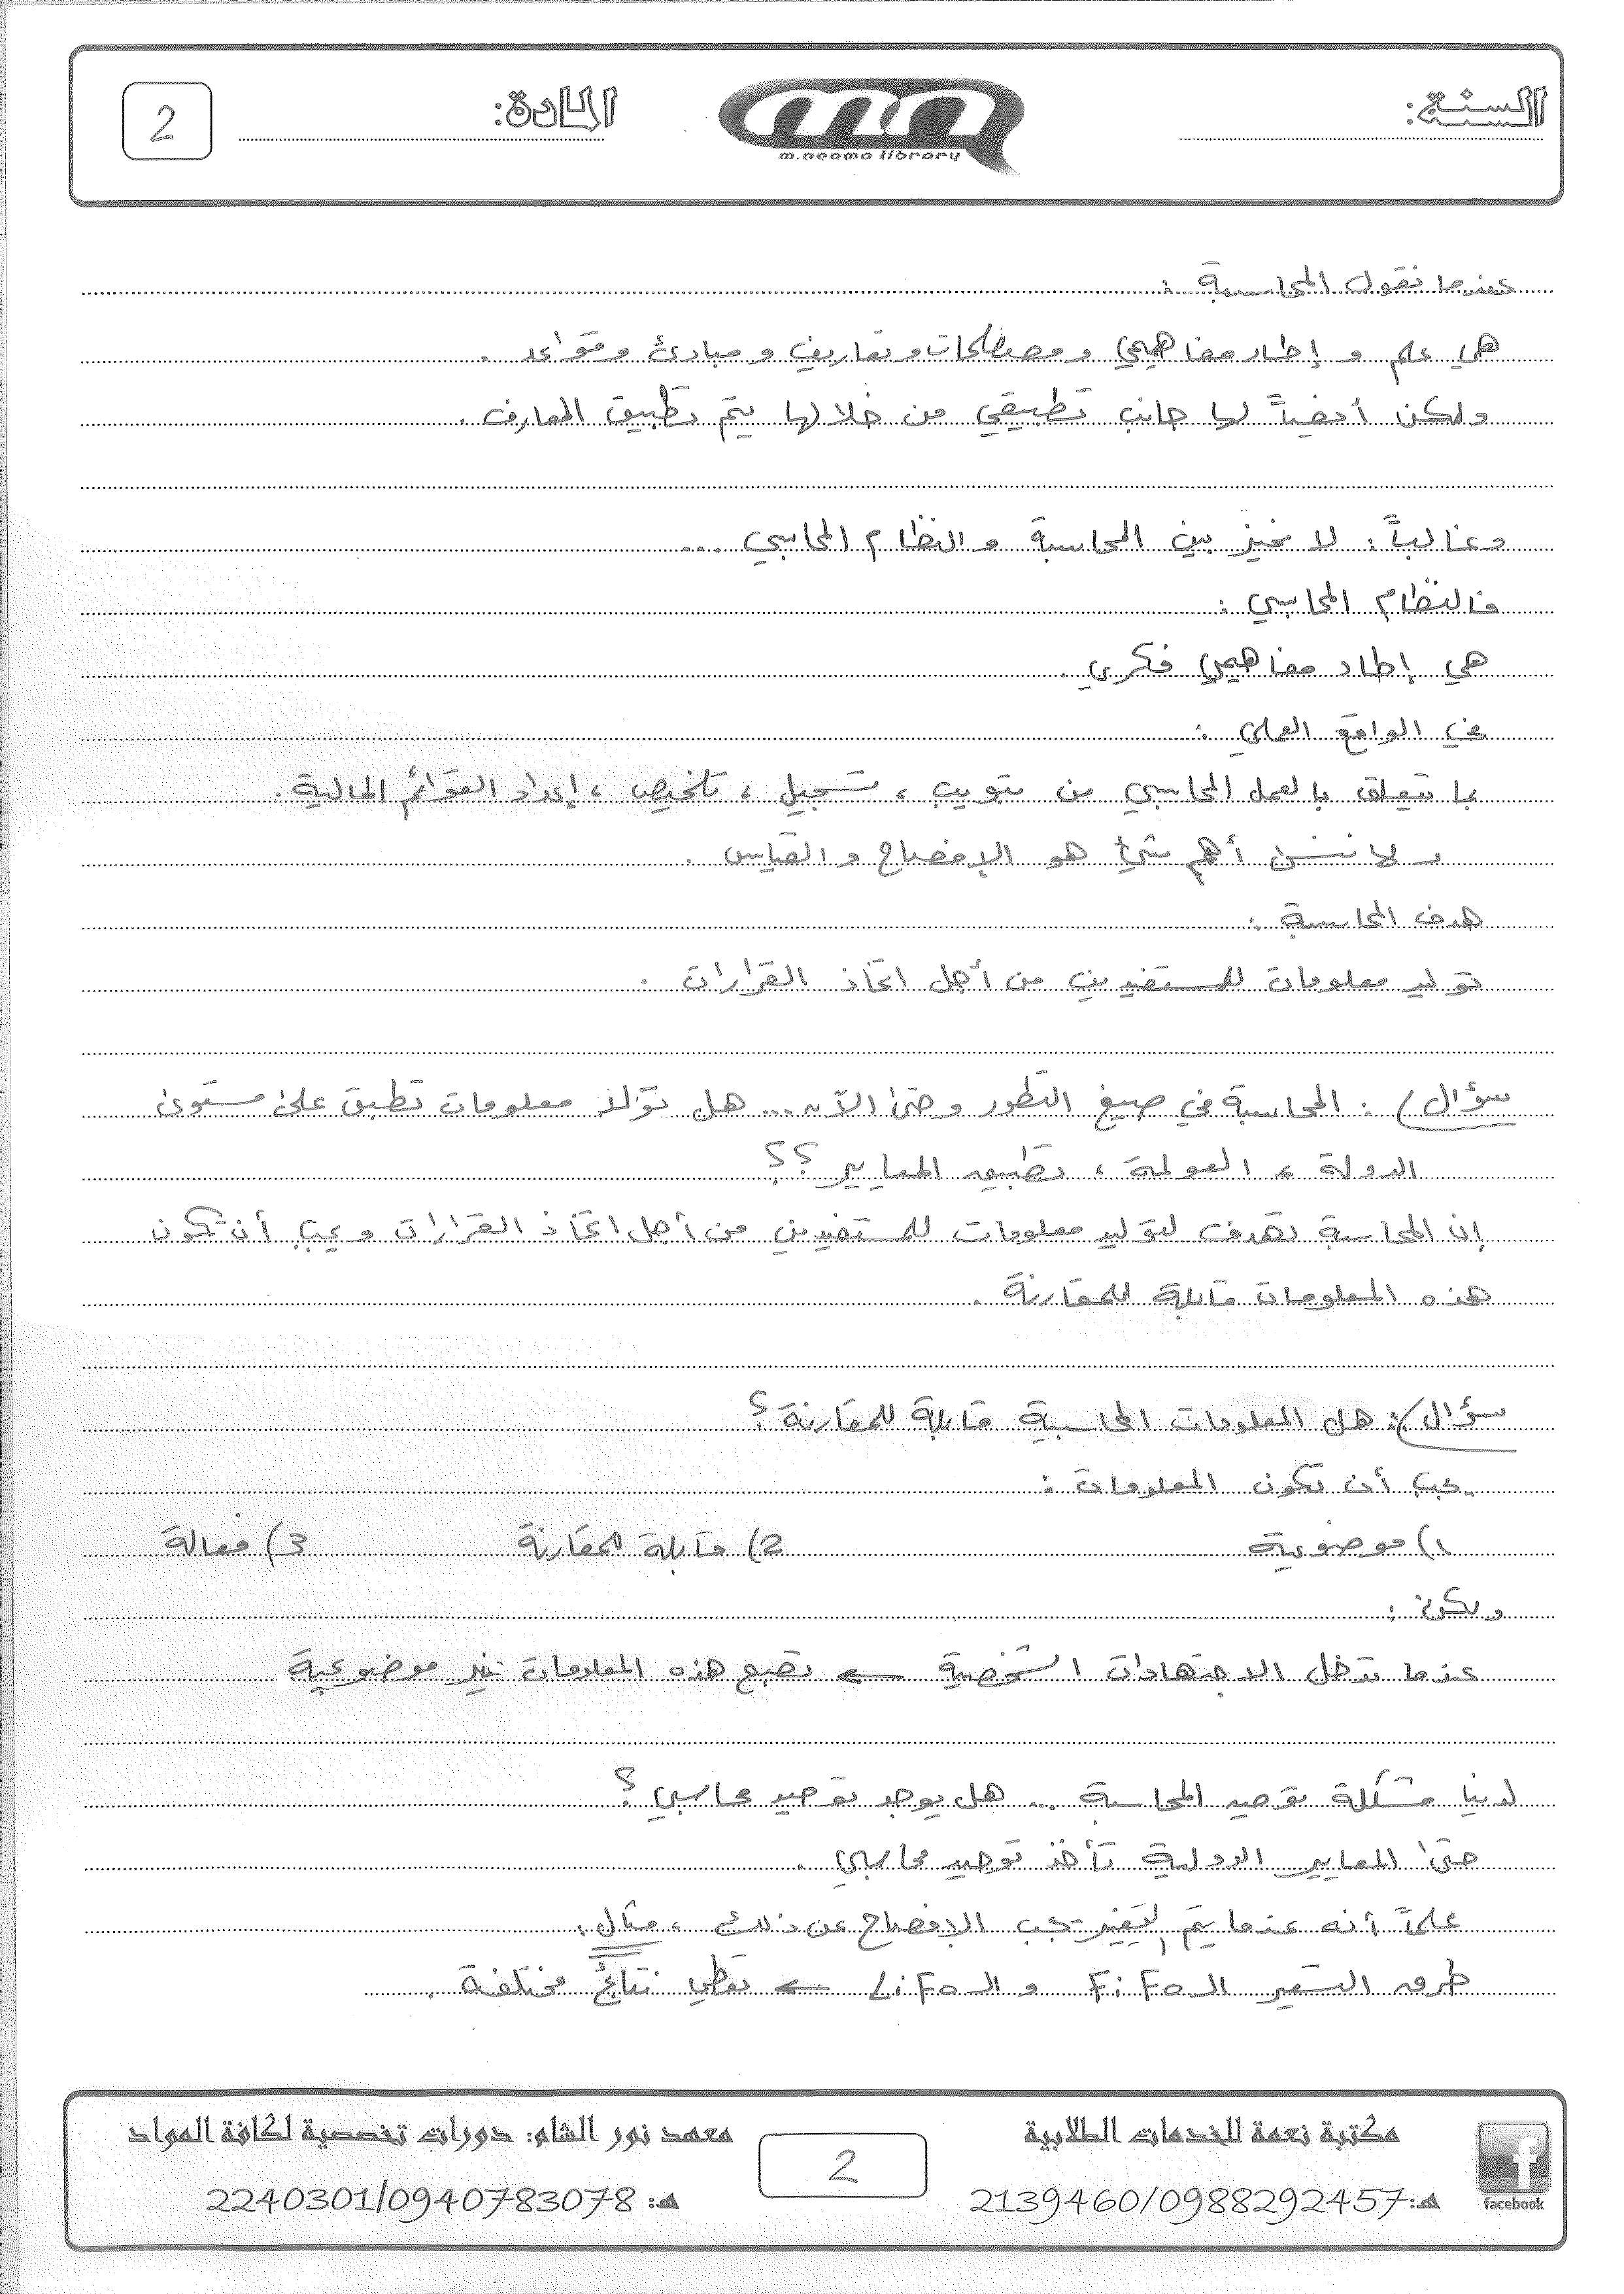 السنة:
m.neama library
المادة:
2
عندما نقول المحاسبة :
هي علم و إطار مفاهيمي و مصطلحات و تعاريف و مبادئ وقواعد .
ولكن أيضاً لها جانب تطبيقي من خلالها يتم تطبيق المعارف .
وغالباً : لا نميز بين المحاسبة و النظام المحاسبي ...
فالنظام المحاسبي :
هي إطار مفاهيمي فكري .
في الواقع العملي :
ما يتعلق بالعمل المحاسبي من تبويب ، تسجيل ، تلخيص ، إعداد القوائم المالية .
ولا ننسى أهم شيء هو الإفصاح و القياس .
هدف المحاسبة :
توليد معلومات للمستفيدين من أجل اتخاذ القرارات .
سؤال) : المحاسبة في صيغ التطور وحتى الآن ... هل تولد معلومات تطبق على مستوى
الدولة ، العولمة ، تطبيق المعايير ؟؟
إن المحاسبة تهدف لتوليد معلومات للمستفيدين من أجل اتخاذ القرارات ويجب أن تكون
هذه المعلومات قابلة للمقارنة .
سؤال) : هل المعلومات المحاسبية قابلة للمقارنة ؟
يجب أن تكون المعلومات :
1) موضوعية 2) قابلة للمقارنة 3) فعالة
ولكن :
عندما تدخل الاجتهادات الشخصية ← تصبح هذه المعلومات غير موضوعية
لدينا مشكلة توحيد المحاسبة ... هل يوجد توحيد محاسبي ؟
حتى المعايير الدولية تأخذ توحيد محاسبي .
علماً أنه عندما يتم التغيير يجب الإفصاح عن ذلك ، مثال :
طرق التسعير الـ FiFo و الـ LiFo ← تعطي نتائج مختلفة .
facebook
مكتبة نعمة للخدمات الطلابية
هـ: 2139460/0988292457
2
معهد نور الشام: دورات تخصصية لكافة المواد
هـ: 2240301/0940783078